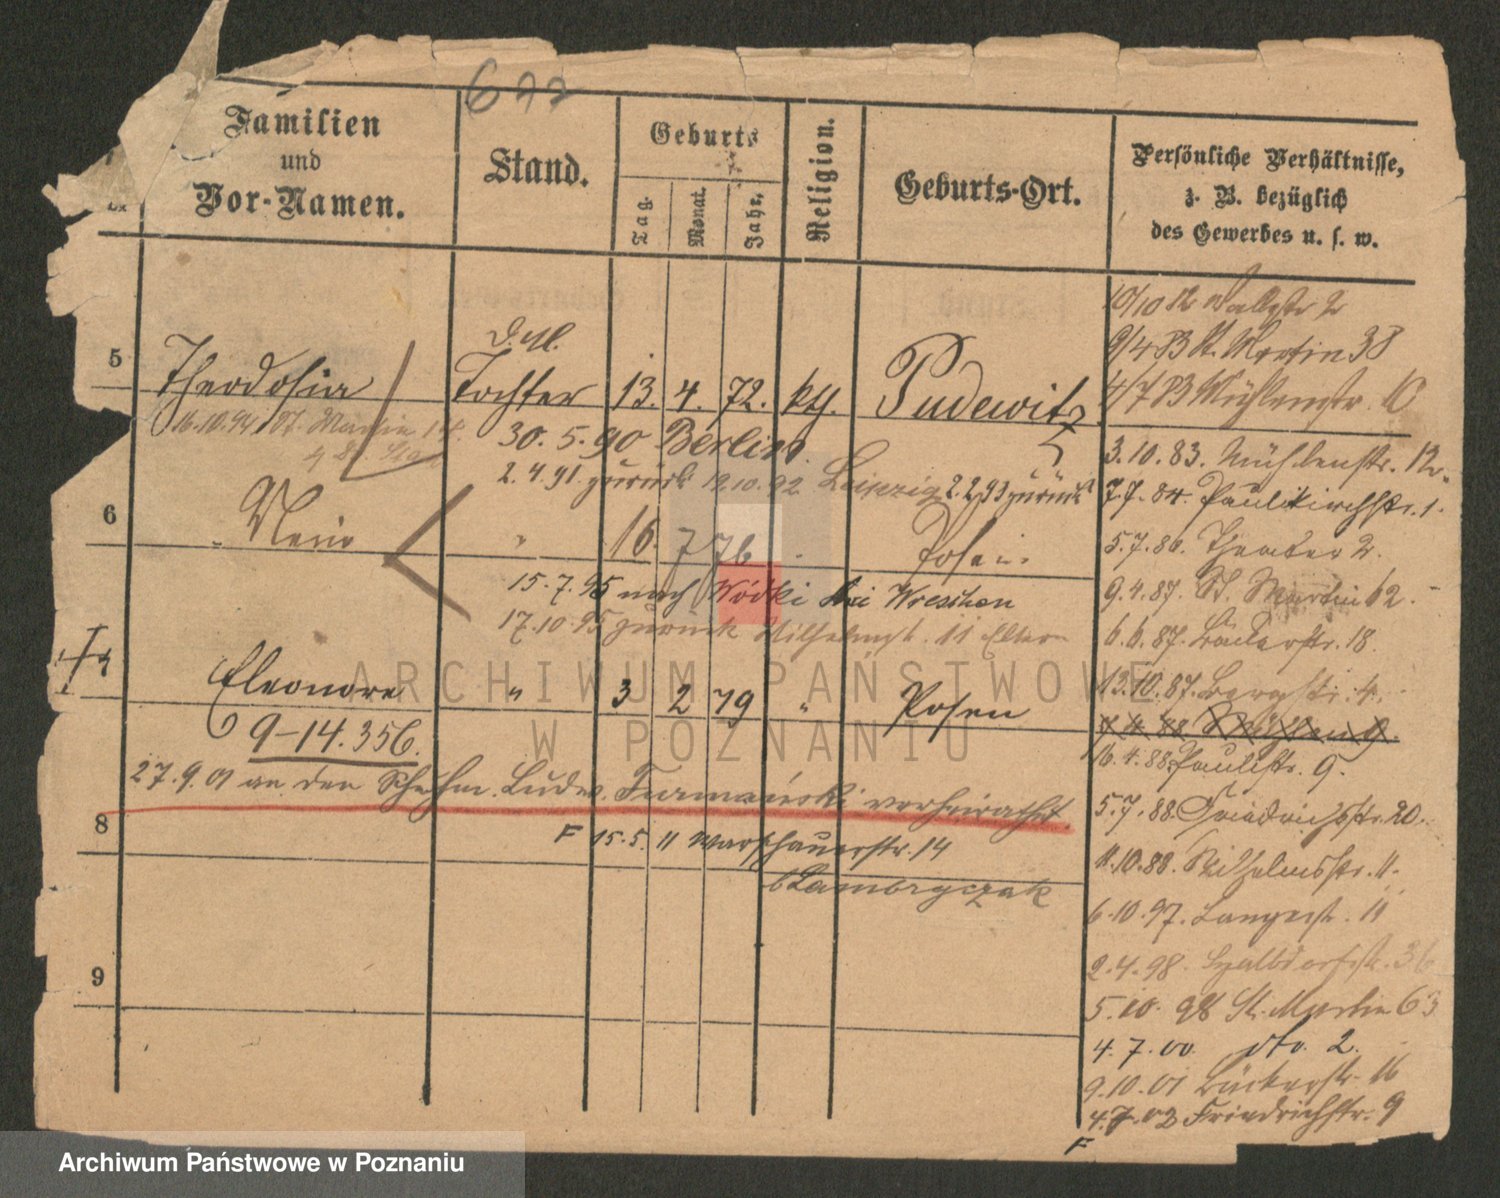 622
Familien
und
Vor-Namen.
Stand.
Geburts
Tag.
Monat.
Jahr.
Religion.
Geburts-Ort.
Persönliche Verhältnisse,
z. B. bezüglich
des Gewerbes u. s. w.
5
Theodosia
Tochter
13. 4. 72.
Pudewitz
16.10.94 St. Martin
30. 5. 90 Berlin.
2.4.91. zurück 12.10.92 Leipzig 2.2.93 zurück
6
"
16. 7 76
Posen
15.7.95 nach Wódki bei Wreschen
17.10.95 zurück Wilhelmst. 11 Eltern
Eleonore
"
3 2 79
"
Posen
9-14.356.
27.9.01 an den Ludw. Furmański verheirathet.
8
F 15.5.11 Warschauerstr. 14
b Lambryczak
9
10/10 12 Wallstr 2
9/4 83 St. Martin 38
4/7 83 Mühlenstr. 10
3.10.83. Mühlenstr. 12.
7.7.84. Paulikirchstr. 1.
5.7.86. Theater 2.
9.4.87. St. Martin 62.
6.6.87. Bäckerstr. 18.
13.10.87. Bergstr. 4.
16.4.88. Paulistr. 9.
5.7.88. Friedrichstr. 20.
11.10.88. Wilhelmsstr. 11.
6.10.97. Langestr. 11
2.4.98.
5.10.98 St. Martin 63
4.7.00. dto. 2.
9.10.01 Bäckerstr. 16
4.7.02 Friedrichstr. 9
F
ARCHIWUM PAŃSTWOWE
W POZNANIU
Archiwum Państwowe w Poznaniu